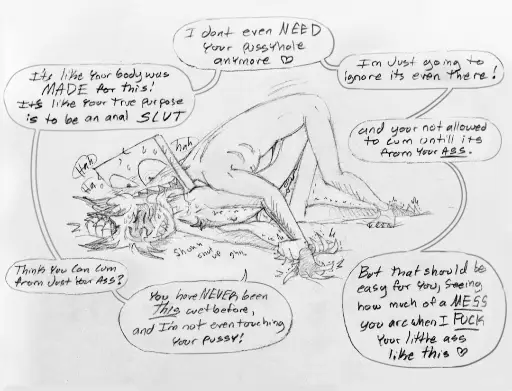 I dont even NEED
Your pussyhole
anymore ♡
Its like Your body was
MADE for this!
Its like Your True Purpose
is to be an anal SLUT
Im Just going to
ignore its even there!
and your not allowed
to cum untill its
from Your ASS.
Hah
Ha
hah
Shuuu
shut
up
Think You Can cum
from Just Your ASS?
You have NEVER been
This wet before,
and I'm not even touching
Your pussy!
But that should be
easy for You, Seeing
how much of a MESS
you are when I FUCK
Your little ass
like this ♡